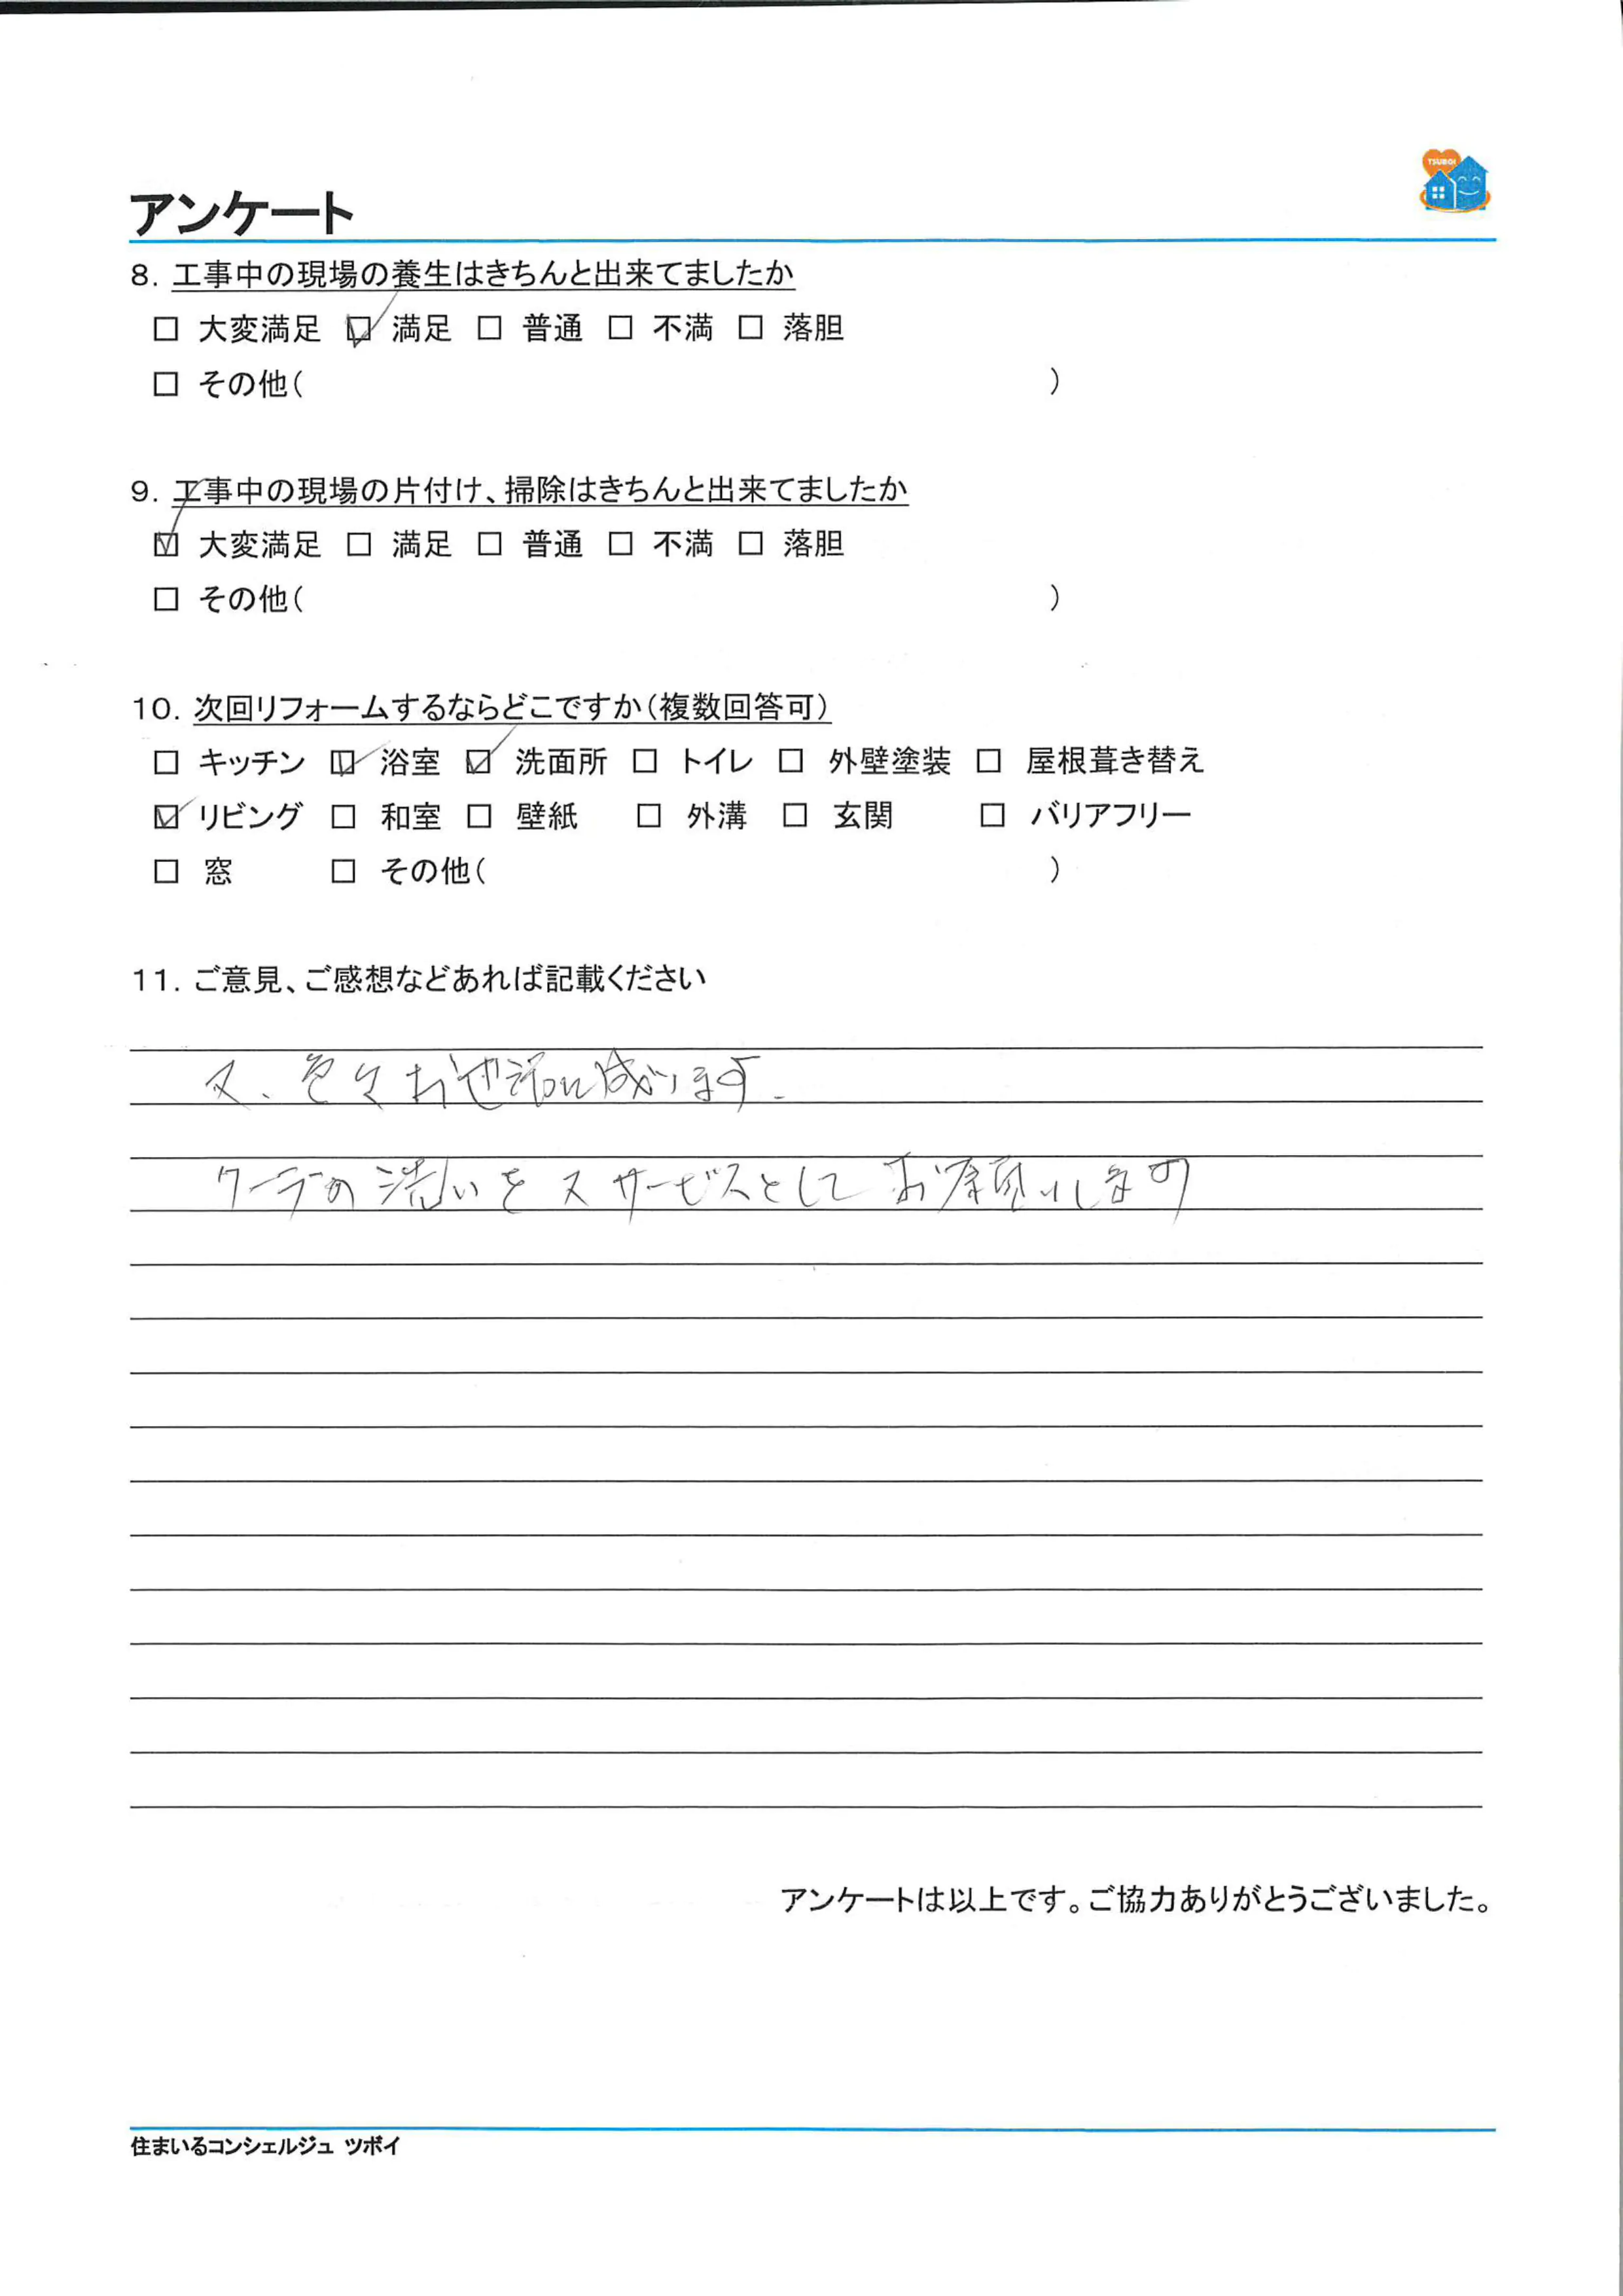 TSUBOI
アンケート
8. 工事中の現場の養生はきちんと出来てましたか
□ 大変満足 ☑ 満足 □ 普通 □ 不満 □ 落胆
□ その他( )
9. 工事中の現場の片付け、掃除はきちんと出来てましたか
☑ 大変満足 □ 満足 □ 普通 □ 不満 □ 落胆
□ その他( )
10. 次回リフォームするならどこですか(複数回答可)
□ キッチン ☑ 浴室 ☑ 洗面所 □ トイレ □ 外壁塗装 □ 屋根葺き替え
☑ リビング □ 和室 □ 壁紙 □ 外溝 □ 玄関 □ バリアフリー
□ 窓 □ その他( )
11. ご意見、ご感想などあれば記載ください
又、色々お世話に成ります.
クーラの洗いを又サービスとしてお願いします
アンケートは以上です。ご協力ありがとうございました。
住まいるコンシェルジュ ツボイ